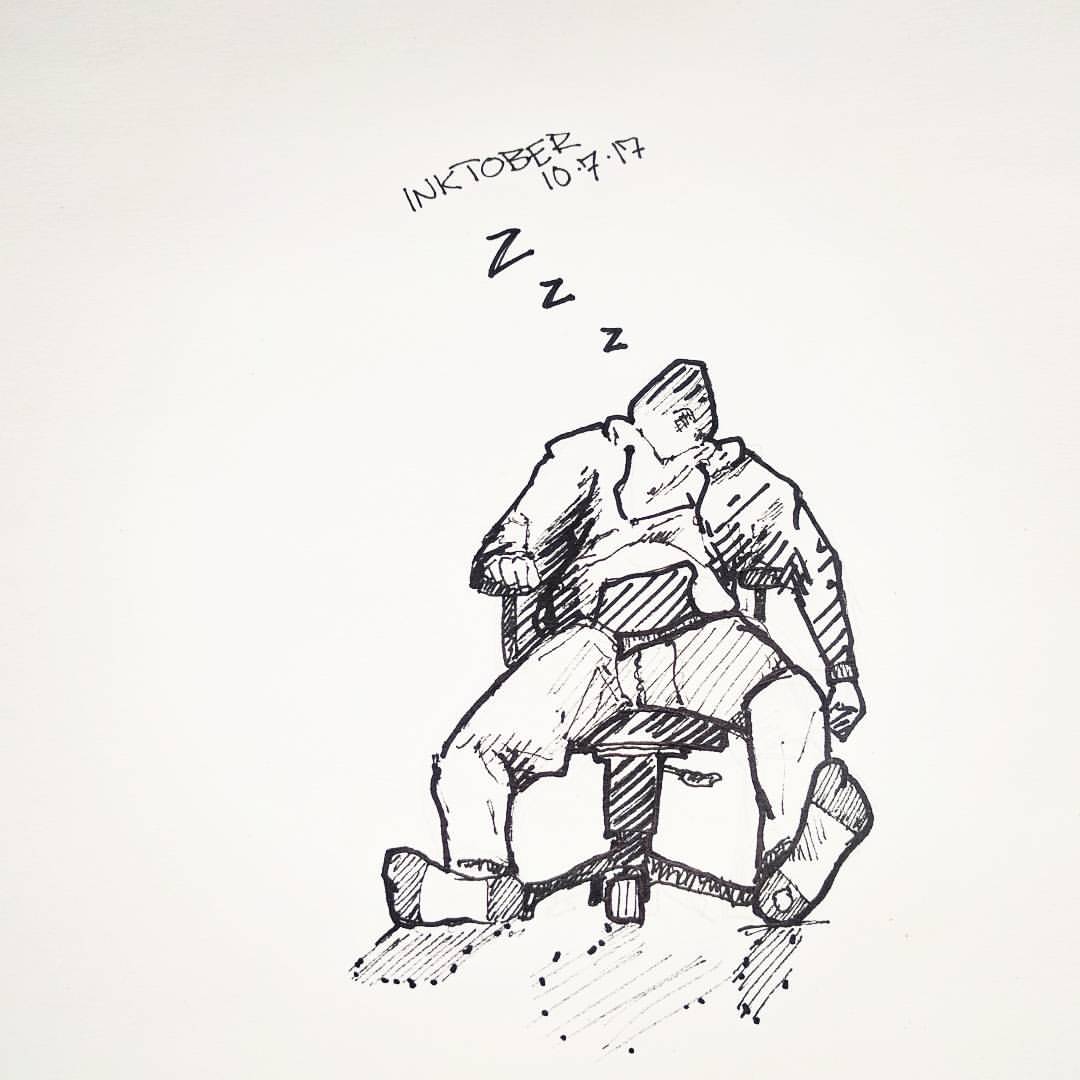 INKTOBER
10.7.17
Z
Z
Z